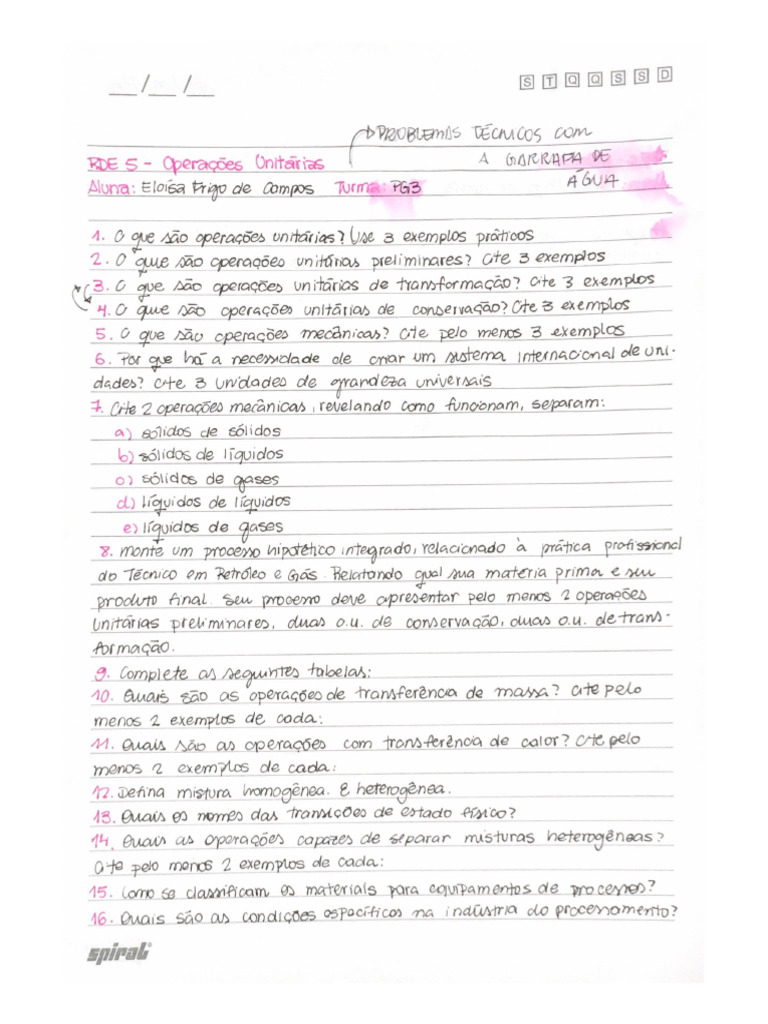 __/__/__
S T Q Q S S D
PROBLEMAS TÉCNICOS COM
A GARRAFA DE
ÁGUA
RDE 5 - Operações Unitárias
Aluna: Eloísa Frigo de Campos Turma: PG3
1. O que são operações unitárias? Use 3 exemplos práticos
2. O que são operações unitárias preliminares? Cite 3 exemplos
3. O que são operações unitárias de transformação? Cite 3 exemplos
4. O que são operações unitárias de conservação? Cite 3 exemplos
5. O que são operações mecânicas? Cite pelo menos 3 exemplos
6. Por que há a necessidade de criar um sistema internacional de uni-
dades? Cite 3 unidades de grandeza universais
7. Cite 2 operações mecânicas, revelando como funcionam, separam:
a) sólidos de sólidos
b) sólidos de líquidos
c) sólidos de gases
d) líquidos de líquidos
e) líquidos de gases
8. Monte um processo hipotético integrado, relacionado à prática profissional
do Técnico em Petróleo e Gás. Relatando qual sua materia prima e seu
produto final. Seu processo deve apresentar pelo menos 2 operações
unitárias preliminares, duas o.u. de conservação, duas o.u. de trans-
formação.
9. Complete as seguintes tabelas:
10. Quais são as operações de transferência de massa? Cite pelo
menos 2 exemplos de cada:
11. Quais são as operações com transferência de calor? Cite pelo
menos 2 exemplos de cada:
12. Defina mistura homogênea. E heterogênea.
13. Quais os nomes das transições de estado físico?
14. Quais as operações capazes de separar misturas heterogêneas?
Cite pelo menos 2 exemplos de cada:
15. Como se classificam os materiais para equipamentos de processos?
16. Quais são as condições específicos na indústria do processamento?
spiral